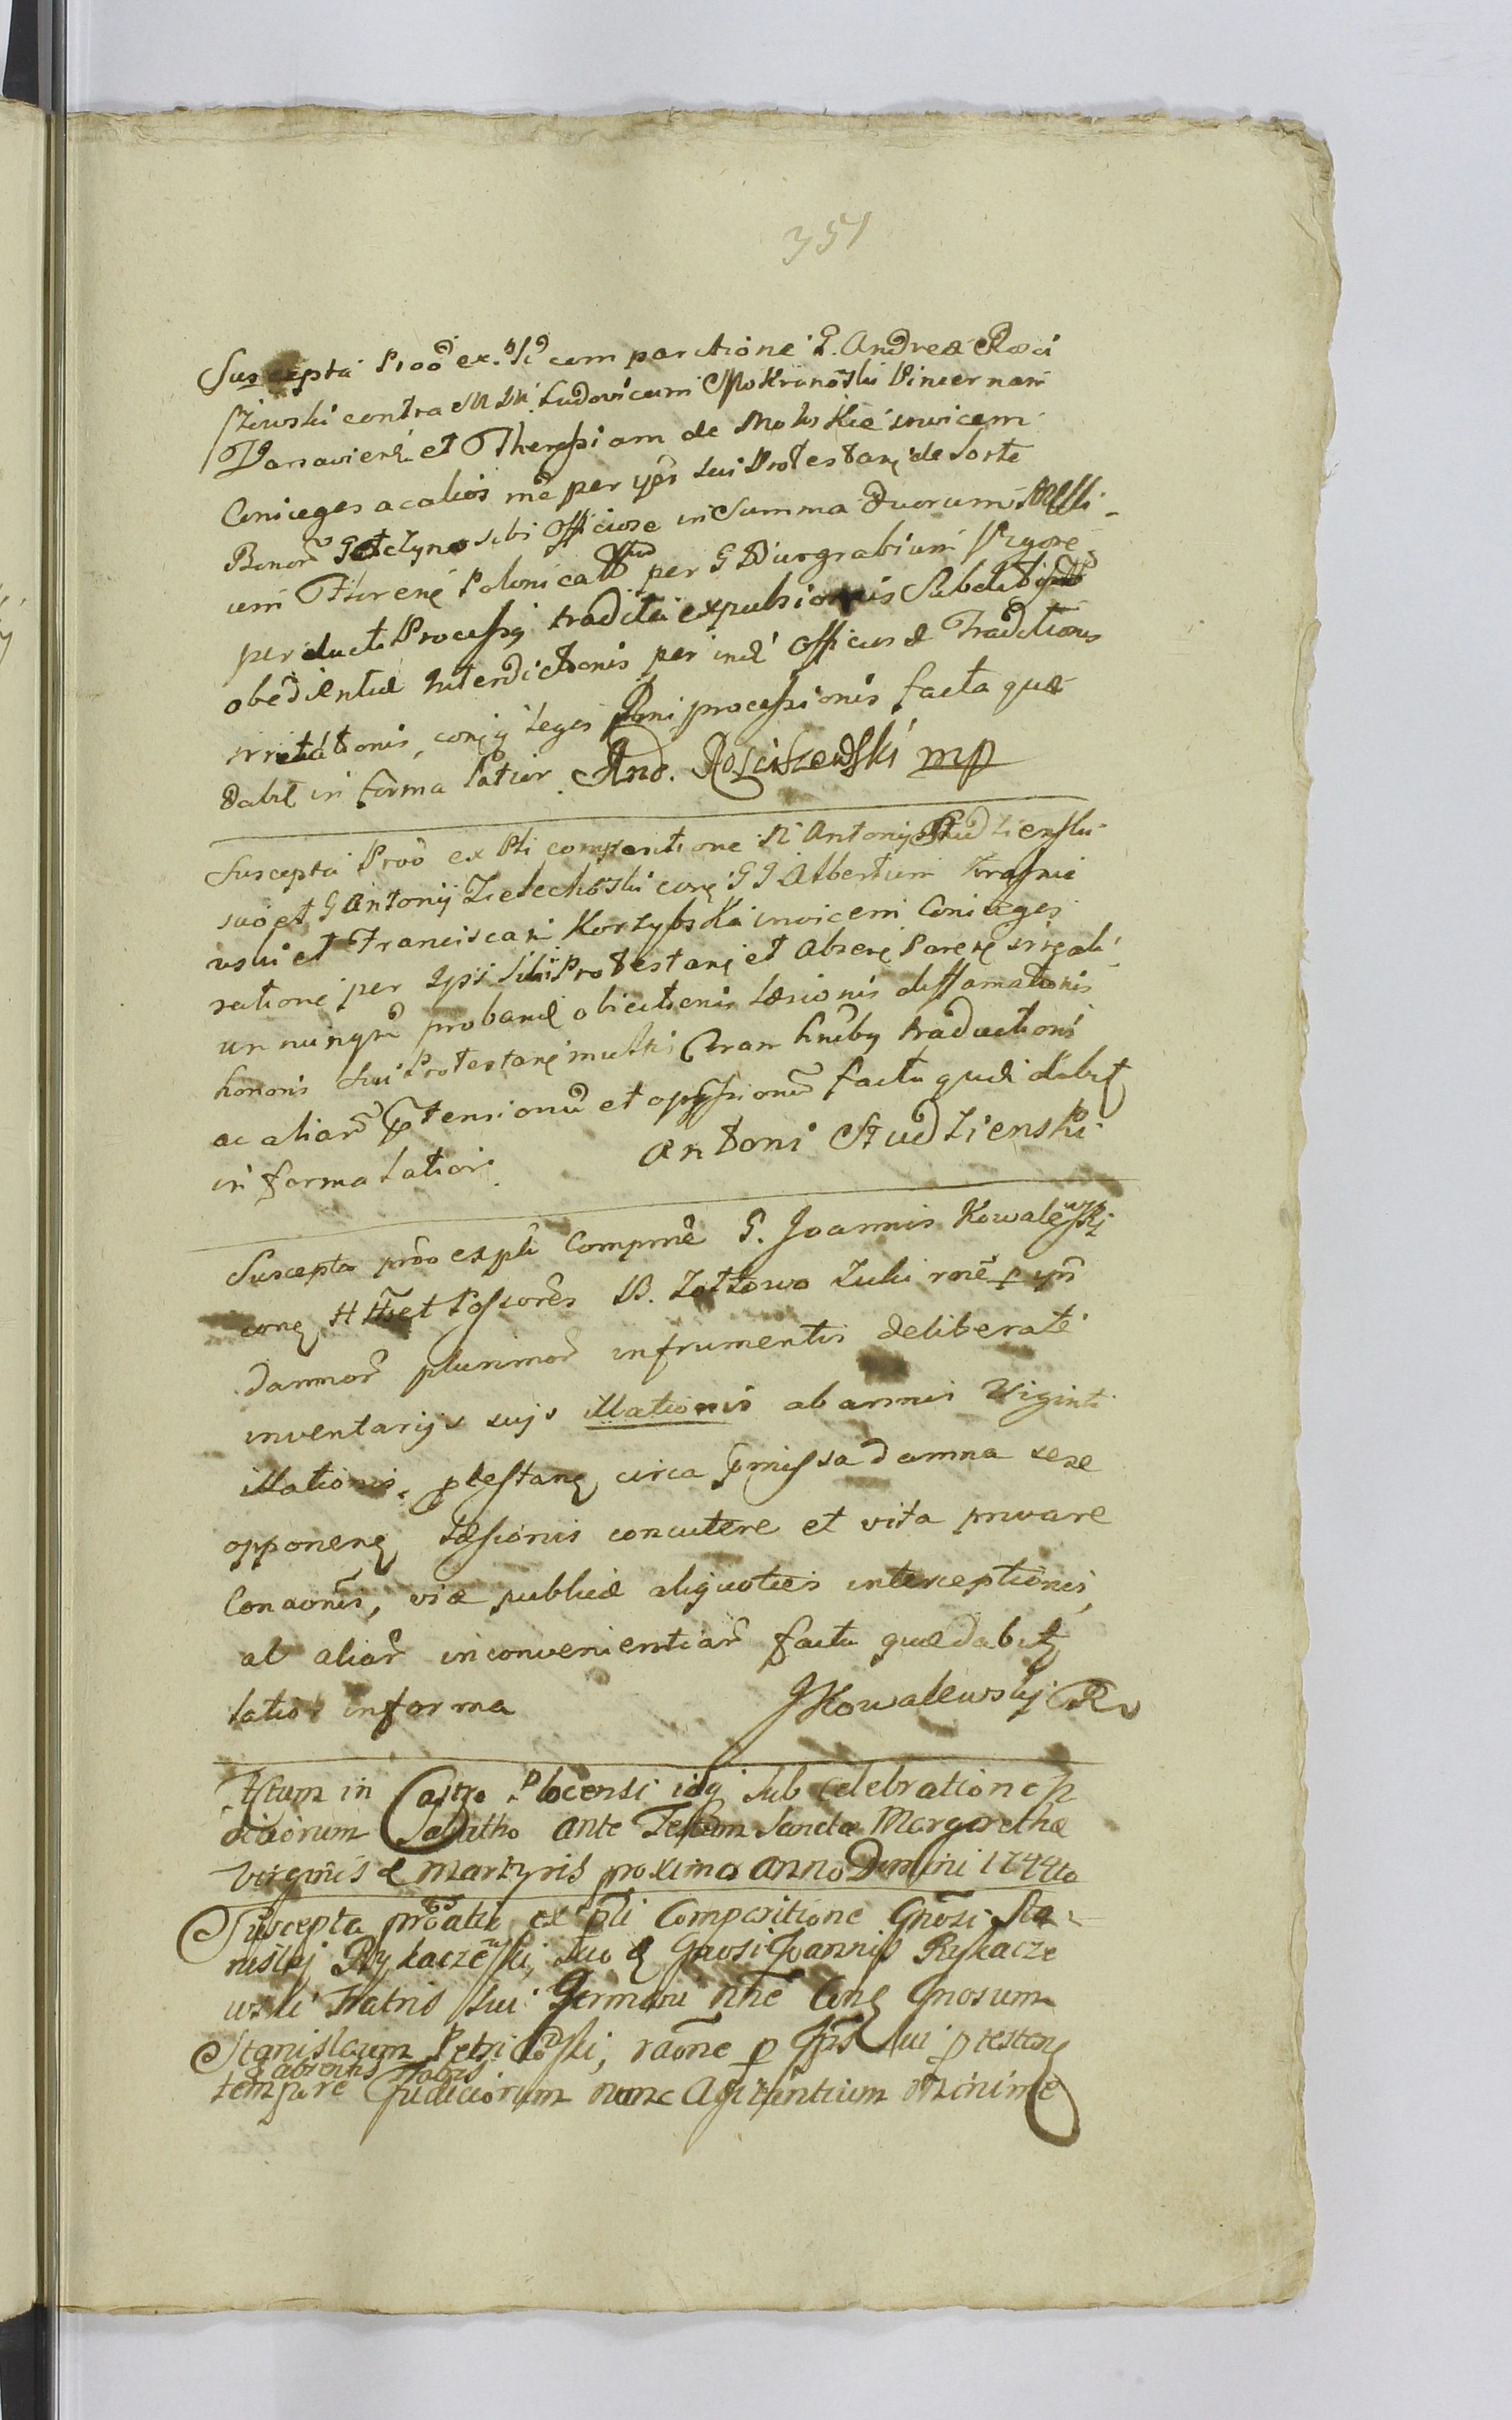 351
Suscepta Proõ ex Pti comparitione G. Andreæ Rosci
szewski contra M M. Ludovicum Mokronoski Pincernam
Varsaviens et Theresiam de invicem
Coniuges ac alios rne per ypos sui Protestanę de sorte
Bonor sibi officiose in Summa Duorum Milli-
um Florenę Polonicał per G Burgrabium vigore
perducti Processy tradita expulsionis Subdit
obedientiæ Interdictionis per inde officiosæ Traditionis
irritationis, conę leges Rni processionis facta quæ
dabit in forma latior. And. Rosciszewski mp
Suscepta Proõ ex Pti comparitione N Antonij Studzienski
suo et G Antonij Zielechoski conę G G Albertum Krasnie
wski et Franciscam Korzybska invicem Coniuges
rationę per Ypos sibi Protestanę et Absenę Parenę
un nunqm probanę obiectionis Læsionis diffamationis
honoris sui Protestanę multis Coram hneby traductioni
ac aliar prtensionu et opressionu facta quæ dabit
in forma latiori. Antoni Studzienski
Suscepta proõ ex pti Compne G. Joannis Kowalewski
conę H H et Possores B. Zołtowo Zuki rne p ypos
damnor plurimor in frumentis deliberate
inventarijs suis illationis ab annis Viginti
illationis, ptestanę circa pmissa damna sese
opponenę Læsionis concutere et vita privare
Conaonis, viæ publicæ aliquoties interceptionis,
al aliar inconvenientiar facta quæ dabit
latior in forma JKowalewski
Actum in Castro Plocensi idq sub Celebratione
diciorum Sabbatho ante Festum Sanctæ Margarethæ
Virginis & Martyris proximo Anno Domini 1744to
Suscepta protatio ex pti Comparitione Gnosi Sta-
nislai Rykaczewski, suo & Gnosi Joannis Rykacze
wski Fratris sui Germani nne Conę Gnosum
Stanislaum Petrikoski, raone p Ypos sui ptestanę
& absentis Fratris
tempore Judiciorum nunc Agitantium Minime